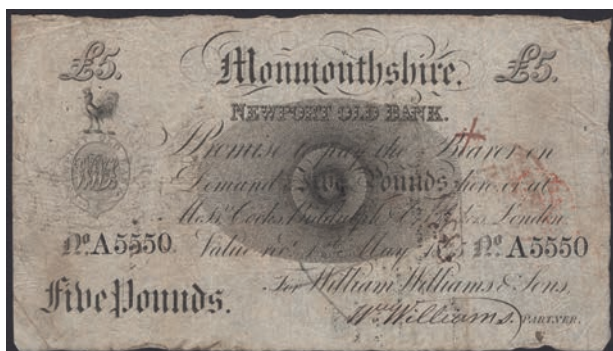 £5. Monmouthshire. £5.
NEWPORT OLD BANK.
I Promise to pay the Bearer on
Demand Five Pounds here or at
Mess.rs Cocks Biddulph & London
No. A5550. Value rec.d May No. A5550
For William Williams & Sons.
Five Pounds.
Wm Williams. PARTNER.